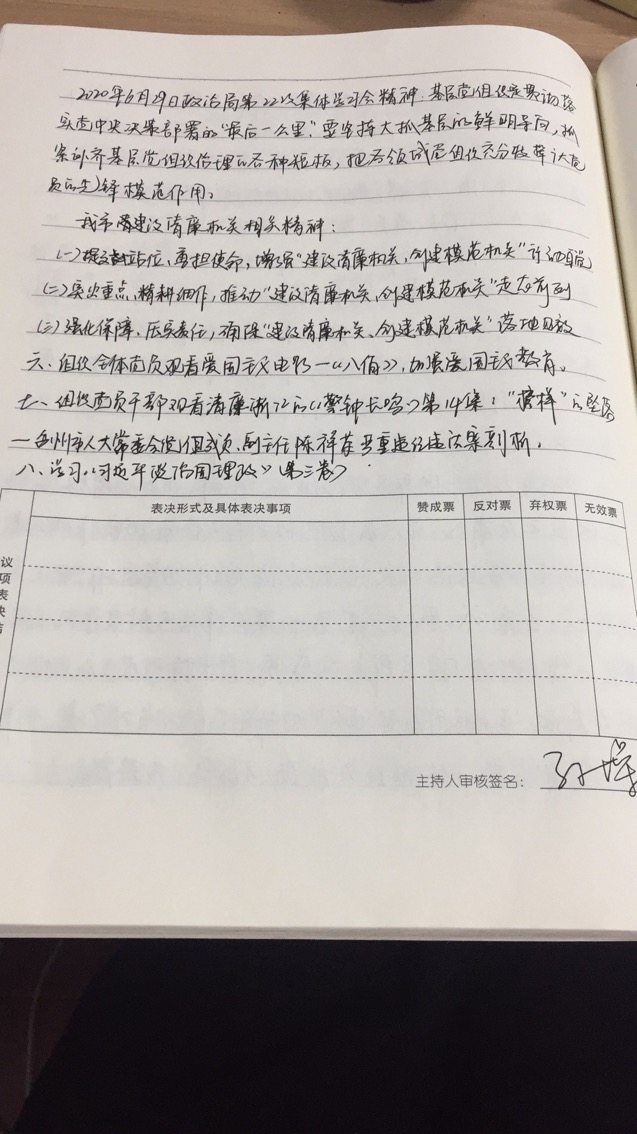 2020年6月29日政治局第22次集体学习会精神：基层党组织是贯彻落
实党中央决策部署的“最后一公里”，要坚持大抓基层的鲜明导向，抓
紧补齐基层党组织治理的各种短板，把各领域基层组织充分发挥
员的先锋模范作用。
我市建设清廉机关相关精神：
(一)提高站位、勇担使命，增强“建设清廉机关，创建模范机关”行动自觉
(二)突出重点、精耕细作，推动“建设清廉机关，创建模范机关”走在前列
(三)强化保障、压实责任，确保“建设清廉机关、创建模范机关”落地见效
六、组织全体党员观看爱国主义电影—《八佰》，加强爱国主义教育。
七、组织党员干部观看清廉浙江的《警钟长鸣》第14集：“榜样”的坠落
—台州市人大常委会党组成员、副主任陈祥荣严重违纪违法案剖析。
八、学习《习近平谈治国理政》(第三卷)
表决形式及具体表决事项 赞成票 反对票 弃权票 无效票
议
项
表
决
主持人审核签名：